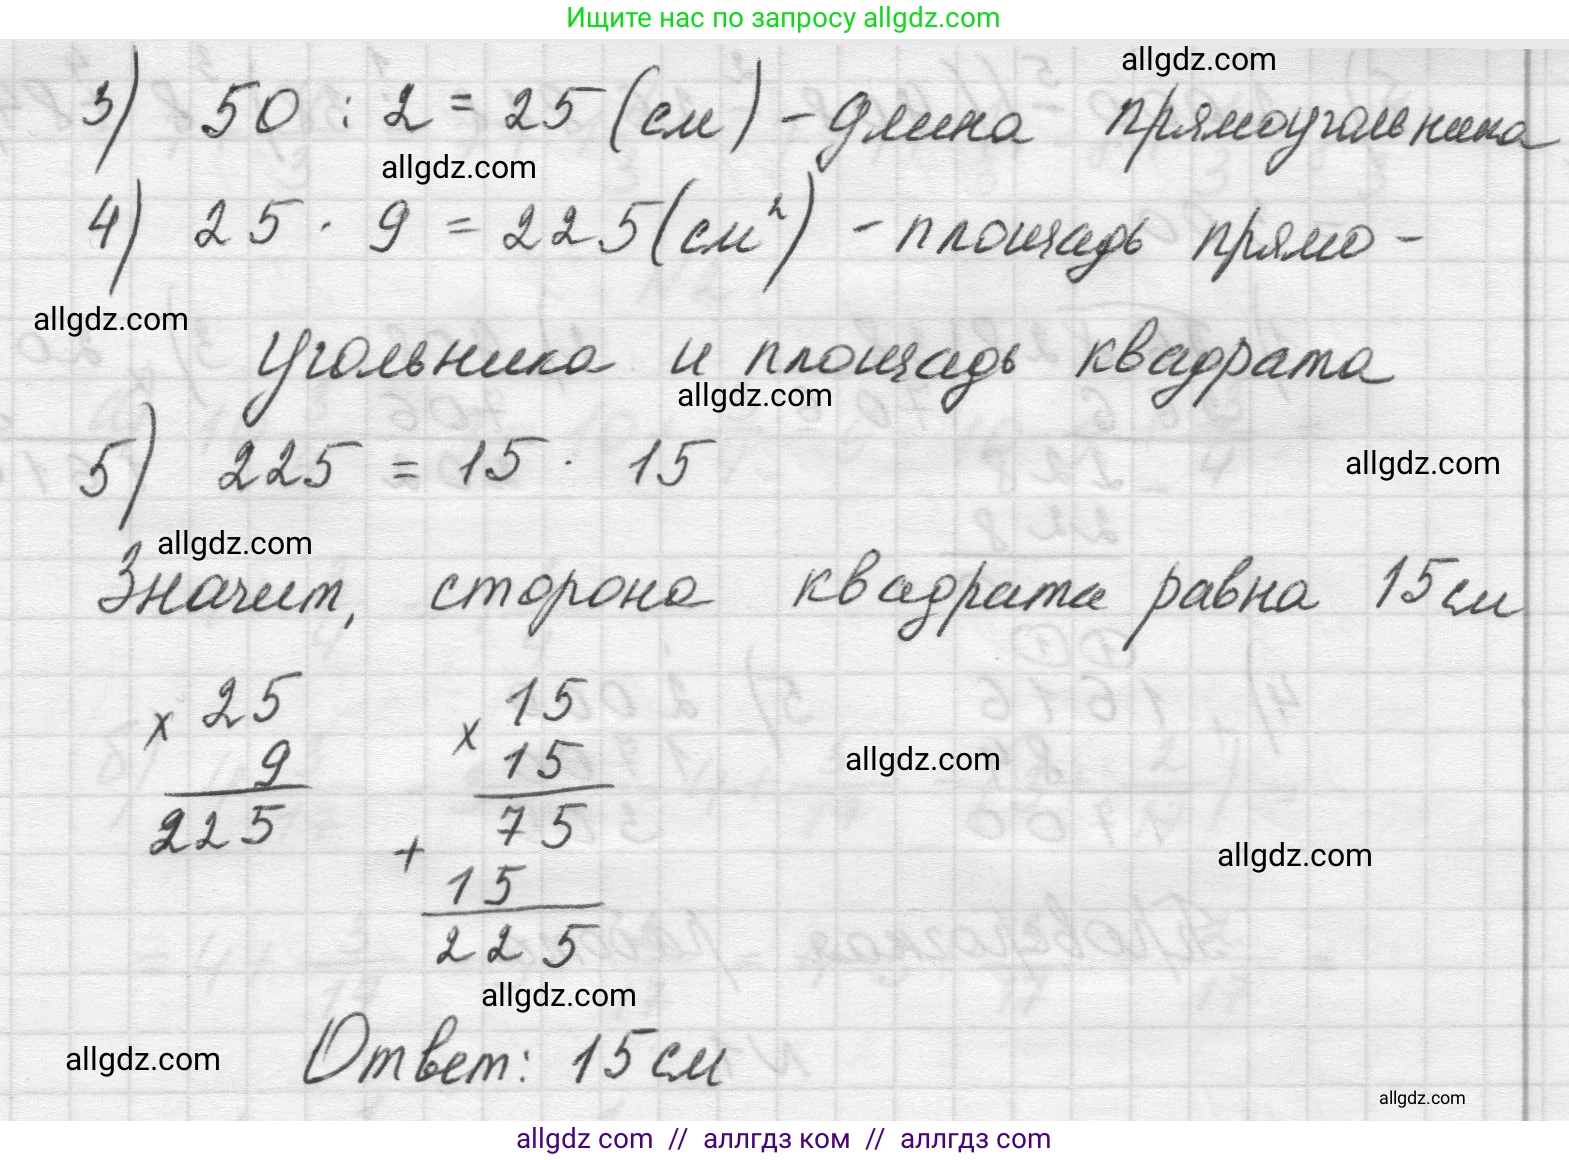 Ищите нас по запросу allgdz.com
allgdz.com
3) 50 : 2 = 25 (см) - длина прямоугольника
allgdz.com
4) 25 · 9 = 225 (см²) - площадь прямо-
allgdz.com
угольника и площадь квадрата
allgdz.com
5) 225 = 15 · 15
allgdz.com
allgdz.com
Значит, сторона квадрата равна 15 см
× 25
9
225
× 15
15
75
+ 15
225
allgdz.com
allgdz.com
allgdz.com
Ответ: 15 см
allgdz.com
allgdz.com
allgdz com // аллгдз ком // аллгдз com